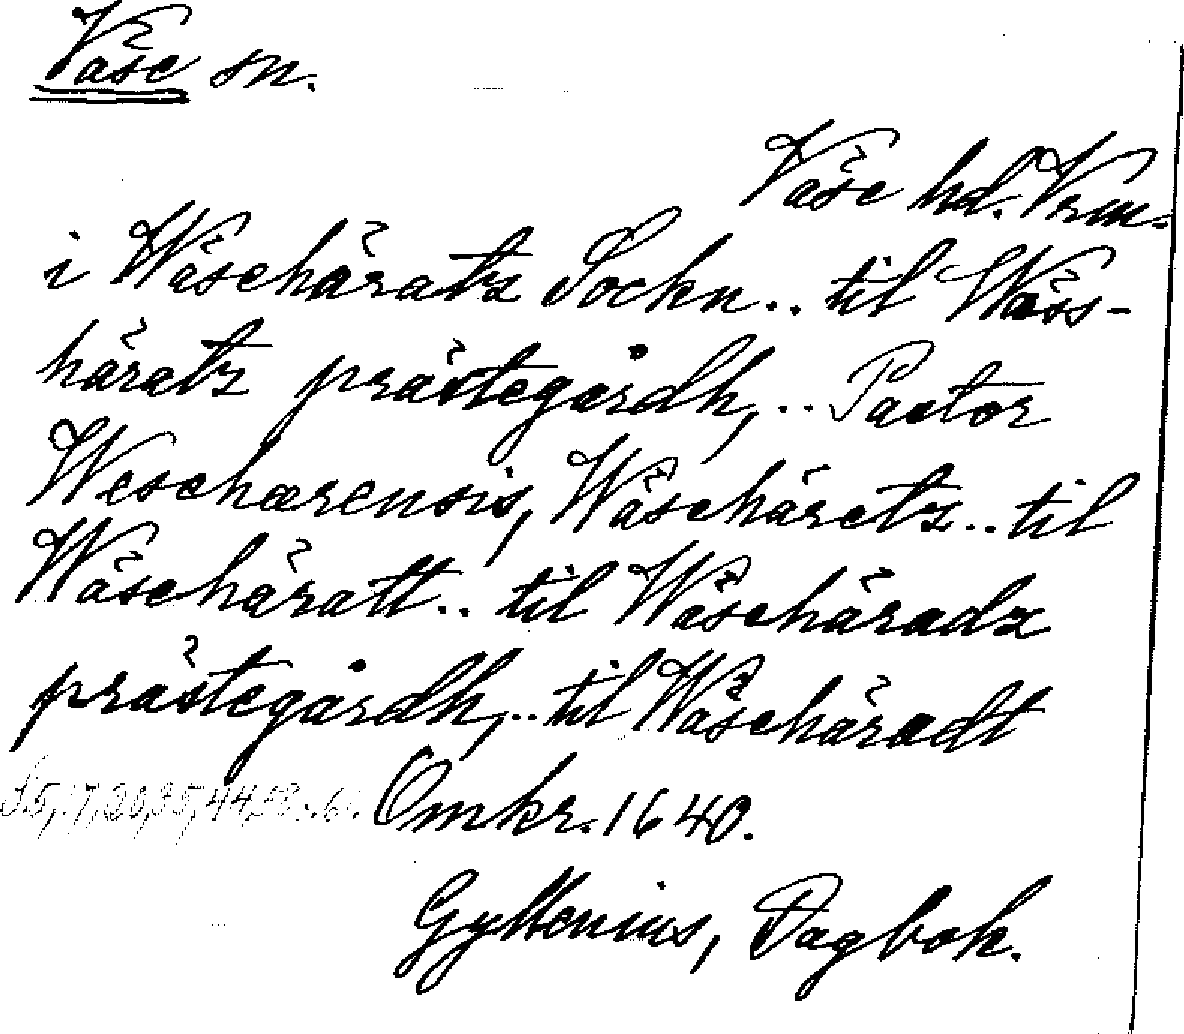 Väse sn.
Väse hd. Vrm.
i Wäsehäratz Sockn.. til Wäss-
häratz prästegårdh,.. Pastor
Wesehærensis, Wäsehäretz.. til
Wäsehäratt.. til Wäsehäradz
prästegårdh,.. til Wäsehäradt
S. 5, 17, 20, 35, 44, 58
Omkr. 1640.
Gyllenius, Dagbok.